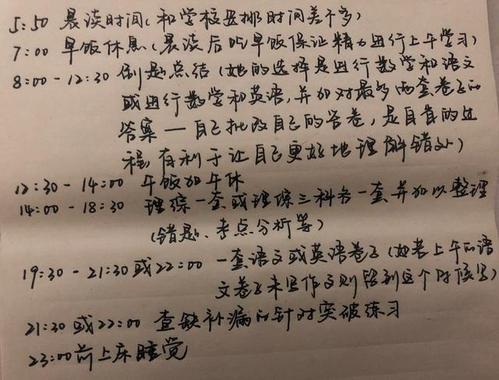 5:50 晨读时间(和学校安排时间差不多)
7:00 早饭休息(晨读后吃早饭保证精力进行上午学习)
8:00 - 12:30 刷题总结(她的选择是进行数学和语文
或进行数学和英语,并加对最多两套卷子的
答案一自己批改自己的答卷,是自省的过
程,有利于让自己更好地理解错处)
12:30 - 14:00 午饭加午休
14:00 - 18:30 理综一套或理综三科各一套,并加以整理
(错题、考点分析等)
19:30 - 21:30或22:00 一套语文或英语卷子(如若上午的语
文卷子未写作文则留到这个时候写)
21:30 或22:00 查缺补漏的针对突破练习
23:00前上床睡觉